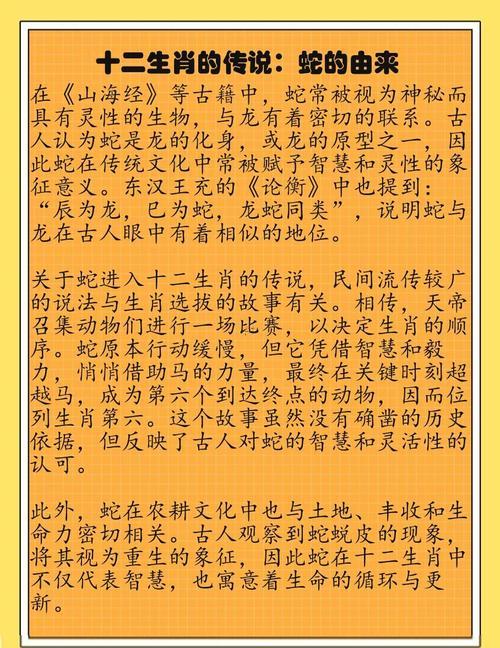 十二生肖的传说：蛇的由来
在《山海经》等古籍中，蛇常被视为神秘而
具有灵性的生物，与龙有着密切的联系。古
人认为蛇是龙的化身，或龙的原型之一，因
此蛇在传统文化中常被赋予智慧和灵性的象
征意义。东汉王充的《论衡》中也提到：
“辰为龙，巳为蛇，龙蛇同类”，说明蛇与
龙在古人眼中有着相似的地位。
关于蛇进入十二生肖的传说，民间流传较广
的说法与生肖选拔的故事有关。相传，天帝
召集动物们进行一场比赛，以决定生肖的顺
序。蛇原本行动缓慢，但它凭借智慧和毅
力，悄悄借助马的力量，最终在关键时刻超
越马，成为第六个到达终点的动物，因而位
列生肖第六。这个故事虽然没有确凿的历史
依据，但反映了古人对蛇的智慧和灵活性的
认可。
此外，蛇在农耕文化中也与土地、丰收和生
命力密切相关。古人观察到蛇蜕皮的现象，
将其视为重生的象征，因此蛇在十二生肖中
不仅代表智慧，也寓意着生命的循环与更
新。